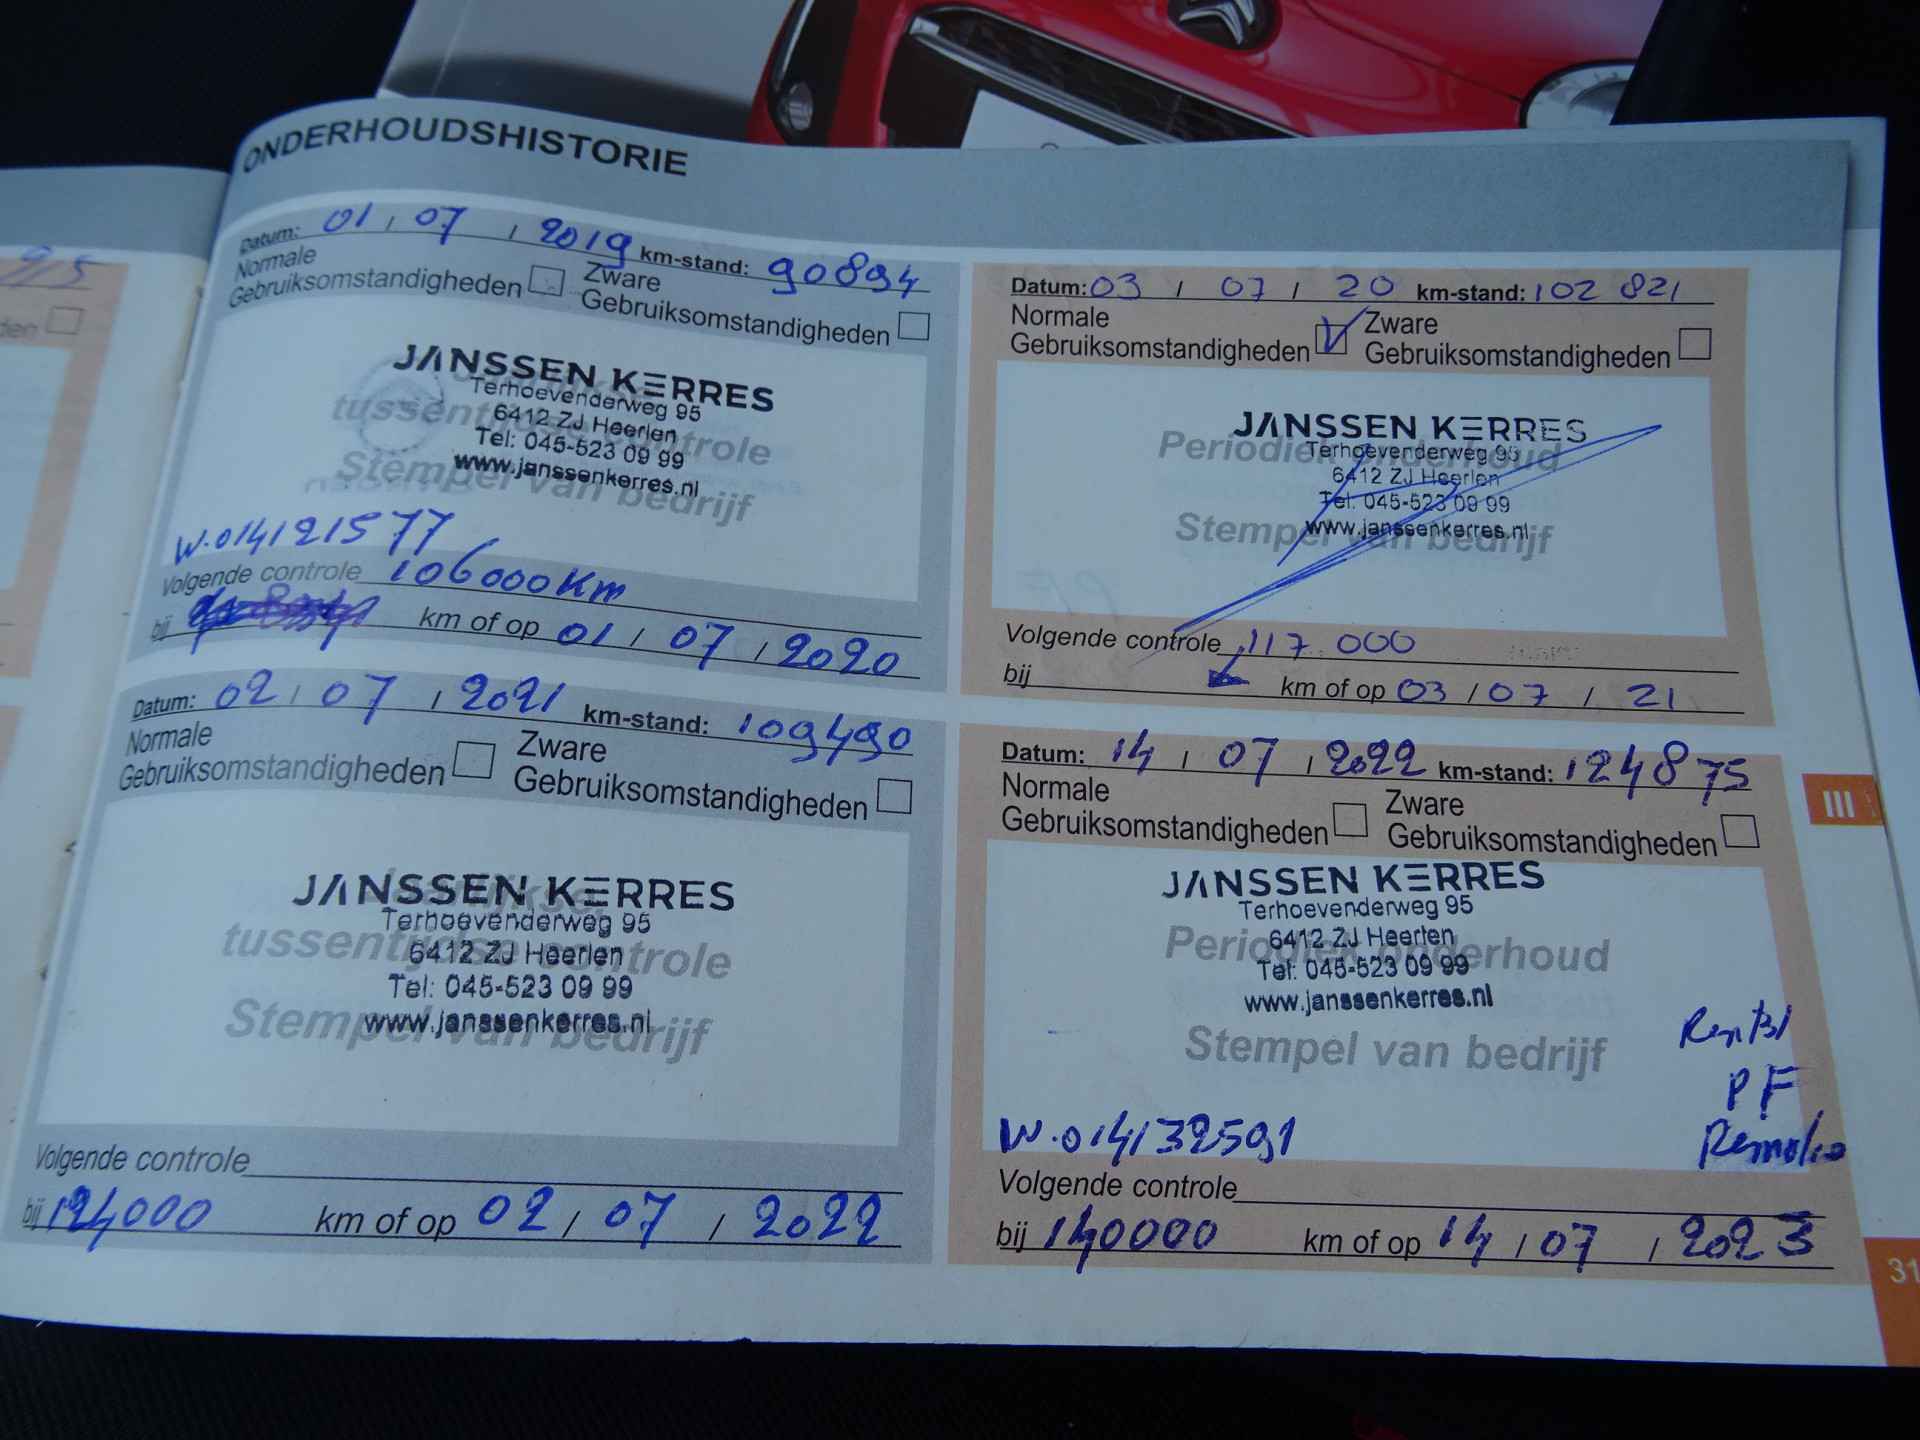 ONDERHOUDSHISTORIE
Datum: 01 / 07 / 2019 km-stand: 90894
Normale Gebruiksomstandigheden Zware Gebruiksomstandigheden
JANSSEN KERRES
Terhoevenderweg 95
6412 ZJ Heerlen
Tel: 045-523 09 99
www.janssenkerres.nl
tussentijdse controle
Stempel van bedrijf
W.014121577
Volgende controle 106000Km
bij km of op 01 / 07 / 2020
Datum: 03 / 07 / 20 km-stand: 102 821
Normale Gebruiksomstandigheden Zware Gebruiksomstandigheden
JANSSEN KERRES
Terhoevenderweg 95
6412 ZJ Heerlen
Tel: 045-523 09 99
www.janssenkerres.nl
Periodiek onderhoud
Stempel van bedrijf
Volgende controle 117.000
bij km of op 03 / 07 / 21
Datum: 02 / 07 / 2021 km-stand: 109490
Normale Gebruiksomstandigheden Zware Gebruiksomstandigheden
JANSSEN KERRES
Terhoevenderweg 95
6412 ZJ Heerlen
Tel: 045-523 09 99
www.janssenkerres.nl
tussentijdse controle
Stempel van bedrijf
Volgende controle
bij 124000 km of op 02 / 07 / 2022
Datum: 14 / 07 / 2022 km-stand: 124875
Normale Gebruiksomstandigheden Zware Gebruiksomstandigheden
JANSSEN KERRES
Terhoevenderweg 95
6412 ZJ Heerlen
Tel: 045-523 09 99
www.janssenkerres.nl
Periodiek onderhoud
Stempel van bedrijf
PF
W.014132591
Volgende controle
bij 140000 km of op 14 / 07 / 2023
III
31